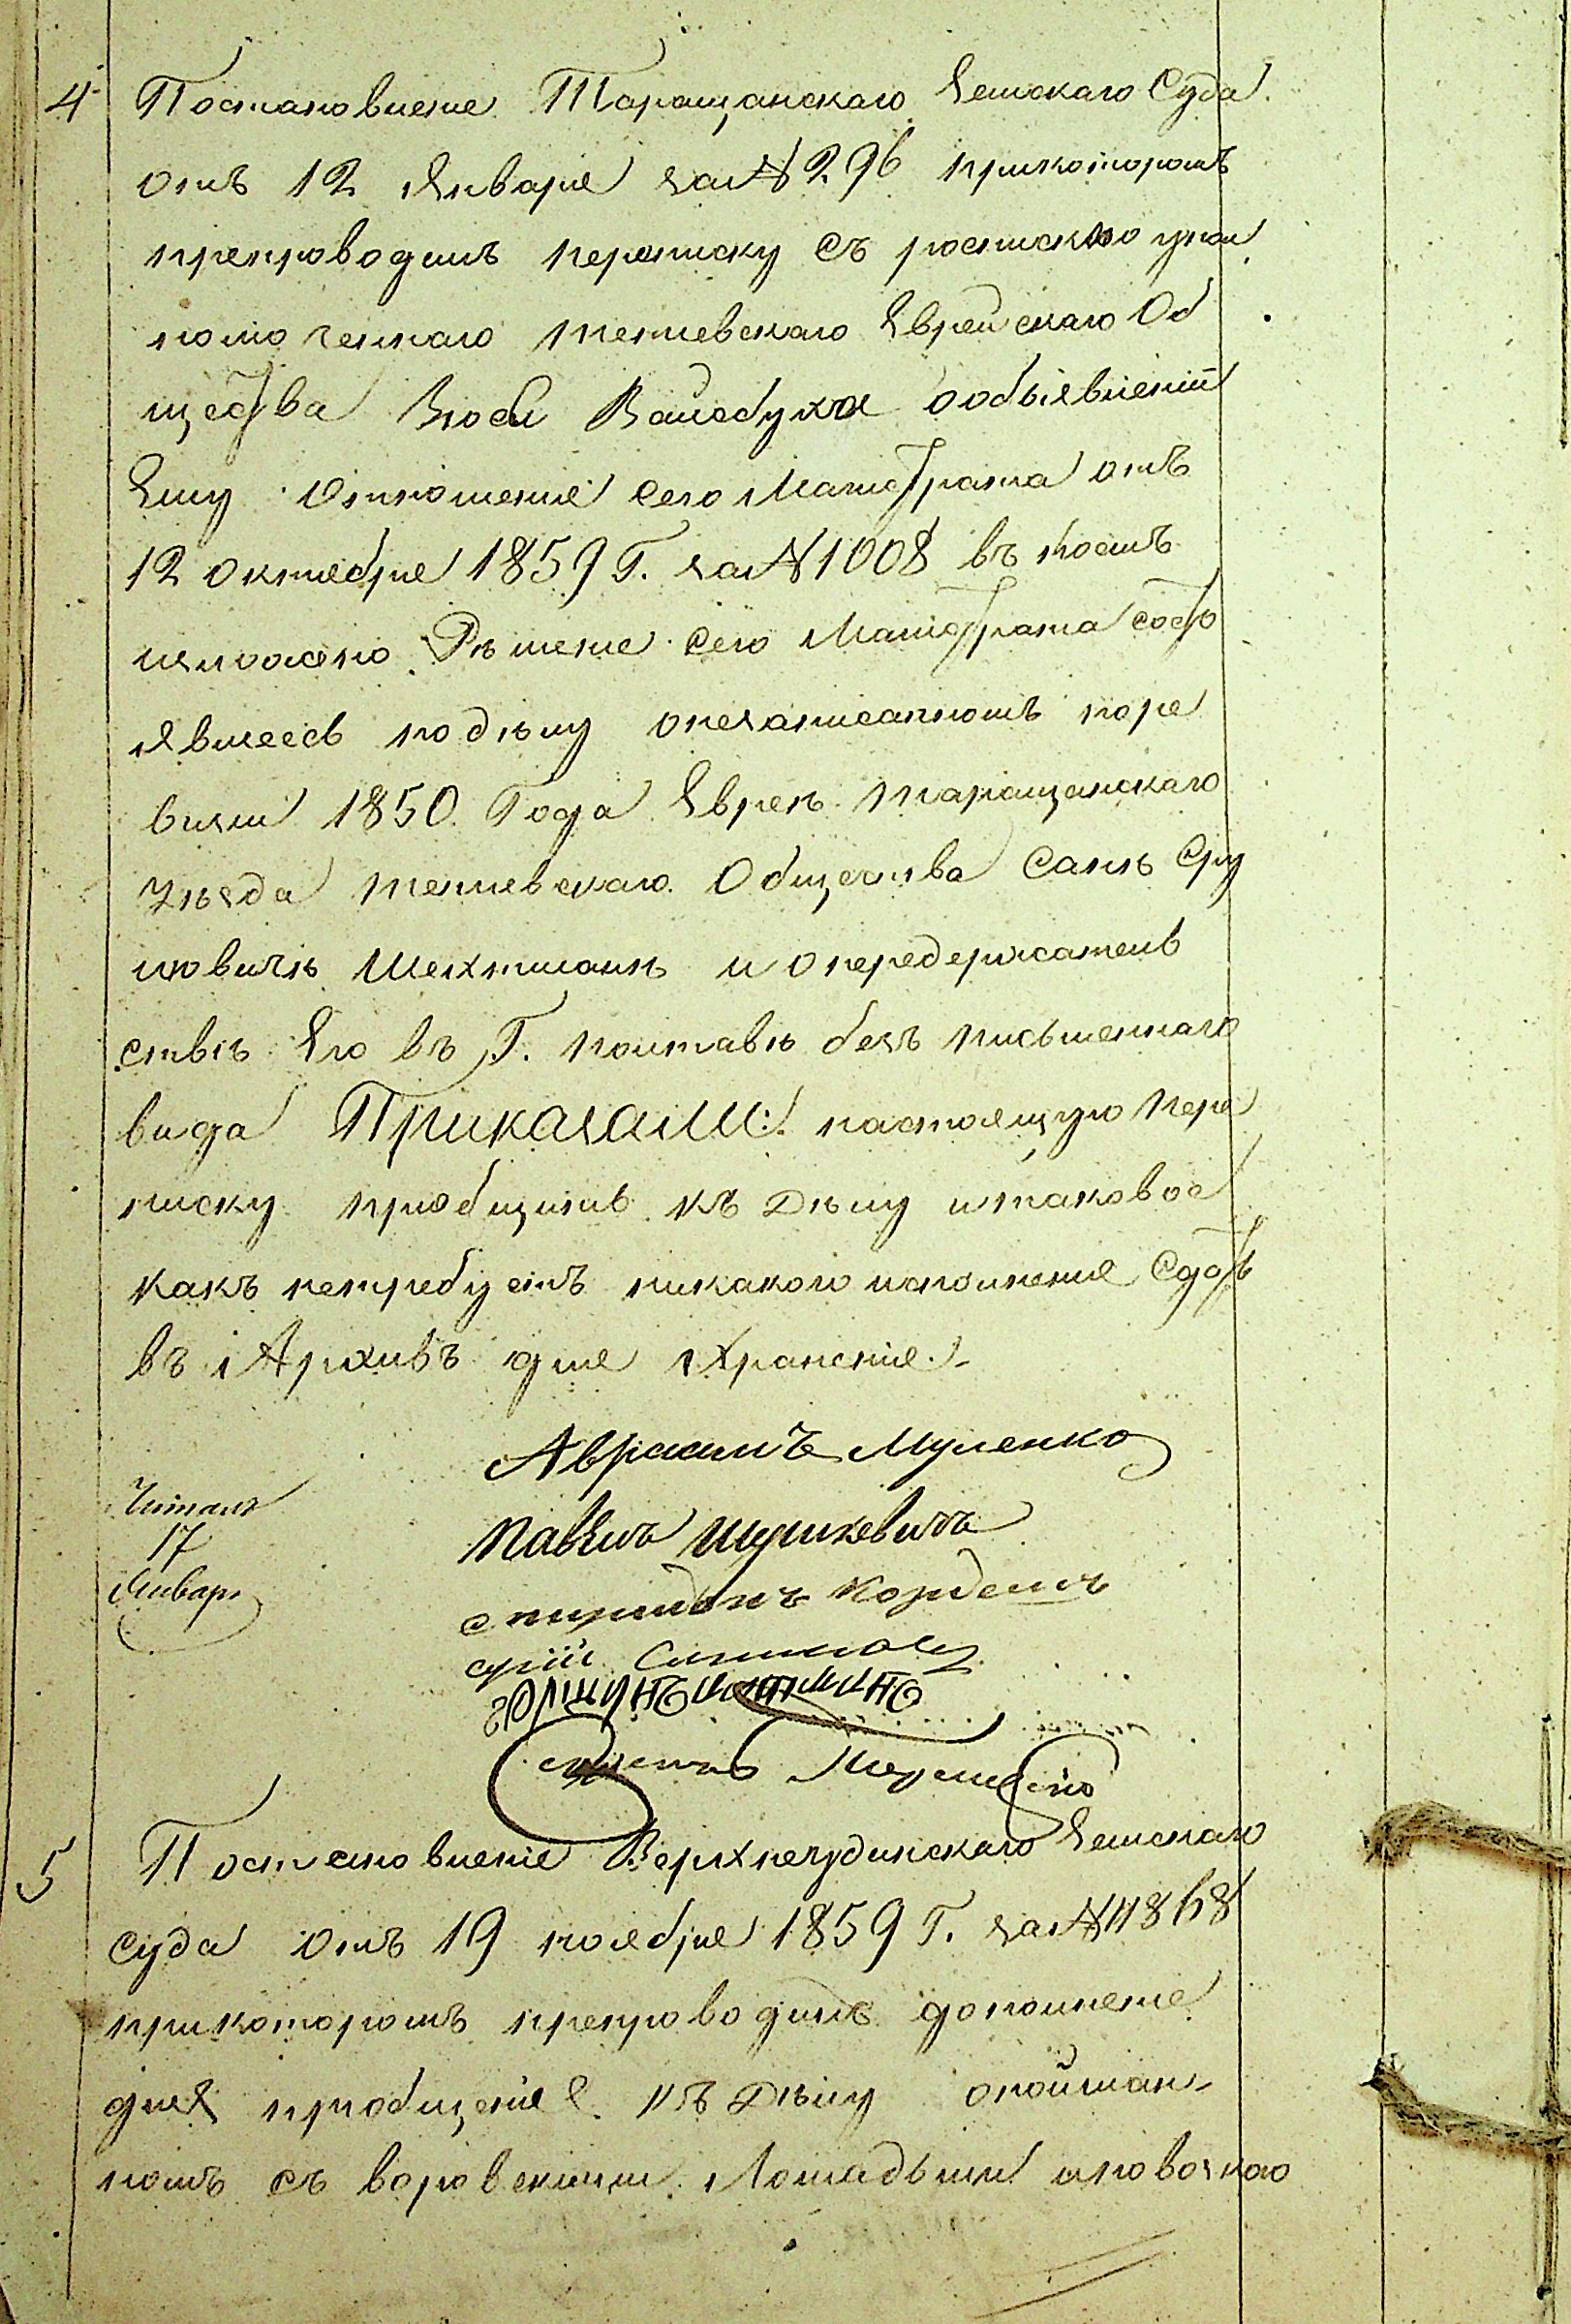 4 Постановление Таращанскаго Земскаго Суда
отъ 12 Января за № 296 прикоторомъ
препроводилъ переписку съ роспискою упол
номоченнаго тетіевскаго Еврейскаго Об
щества Зюси Вайсбуха ообъявленіи
Ему отношеніе сего Магистрата отъ
12 октября 1859 Г. за № 1008 въ коемъ
изложено Решение сего Магистрата состо
явшеесь поделу онезаписанномъ поре
визіи 1850 Года Еврея таращанскаго
уезда тетіевскаго Общества Сани Сру
левича Шехтмана и опередержатель
стве Его въ Г. полтаве безъ письменнаго
вида Приказали: настоящую Пере
писку приобщить къ Делу итаковое
какъ нетребуетъ никакого исполненія Сдать
въ Архивъ для Храненія.
Авраамъ Муленко
Читалъ
17
Январь
Павелъ Шулькевичъ
спиридонъ
5 Постановленіе Верхнеудинскаго Земскаго
суда отъ 19 ноября 1859 Г. за № 11868
прикоторомъ препроводилъ дополнение
для приобщенія къ Делу опойман-
номъ съ воровскими Лошадьми иповозкою